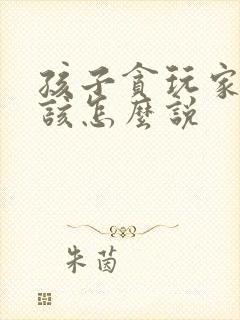 孩子貪玩家
該怎麼説
朱茵